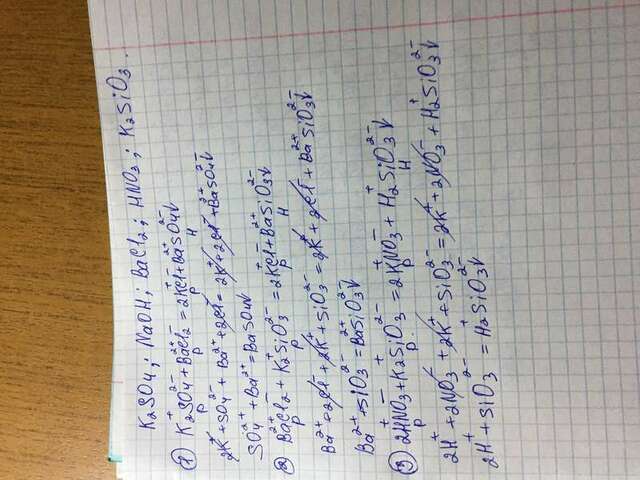 K₂SO₄; NaOH; BaCl₂; HNO₃; K₂SiO₃.
① K₂⁺SO₄²⁻ + Ba²⁺Cl₂⁻ = 2K⁺Cl⁻ + Ba²⁺SO₄²⁻↓
Р Р Р Н
2K⁺ + SO₄²⁻ + Ba²⁺ + 2Cl⁻ = 2K⁺ + 2Cl⁻ + Ba²⁺SO₄²⁻↓
SO₄²⁺ + Ba²⁺ = BaSO₄↓
② Ba²⁺Cl₂⁻ + K₂⁺SiO₃²⁻ = 2K⁺Cl⁻ + Ba²⁺SiO₃²⁻↓
Р Р Р Н
Ba²⁺ + 2Cl⁻ + 2K⁺ + SiO₃²⁻ = 2K⁺ + 2Cl⁻ + Ba²⁺SiO₃²⁻↓
Ba²⁺ + SiO₃²⁻ = Ba²⁺SiO₃²⁻↓
③ 2H⁺NO₃⁻ + K₂⁺SiO₃²⁻ = 2K⁺NO₃⁻ + H₂⁺SiO₃²⁻↓
Р Р. Р Н
2H⁺ + 2NO₃⁻ + 2K⁺ + SiO₃²⁻ = 2K⁺ + 2NO₃⁻ + H₂⁺SiO₃²⁻↓
2H⁺ + SiO₃²⁻ = H₂⁺SiO₃²⁻↓